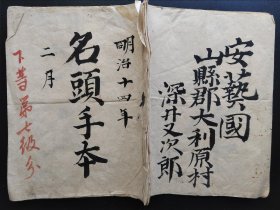 安藝國
山縣郡大利原村
深井又次郎
明治十四年
名頭手本
二月
下等第七級分